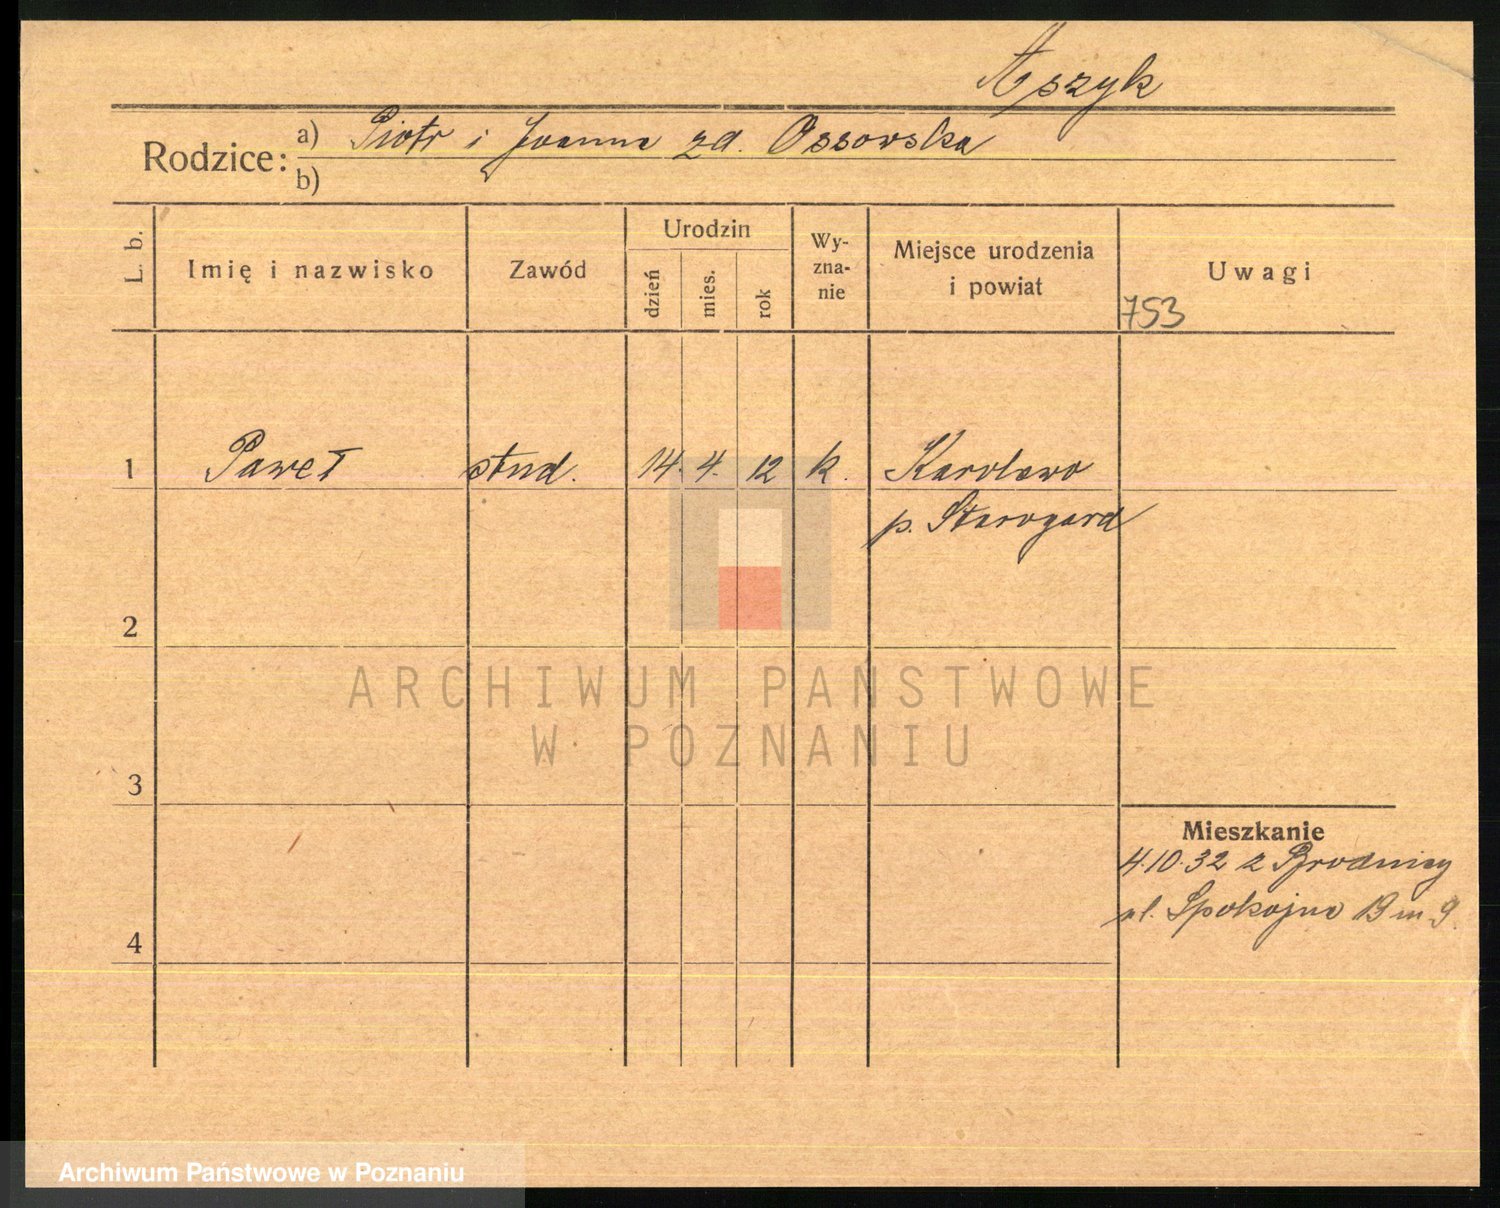 Aszyk
Rodzice: a) Piotr i Joanna zd. Ossowska
b)
L. b. Imię i nazwisko Zawód Urodzin dzień mies. rok Wy-zna-nie Miejsce urodzenia i powiat Uwagi
753
1 Paweł stud. 14. 4. 12 k. Karolewo
p. Starogard
2
ARCHIWUM PAŃSTWOWE
W POZNANIU
3
Mieszkanie
4.10.32 z Brodnicy
ul. Spokojna 19 m. 9.
4
Archiwum Państwowe w Poznaniu